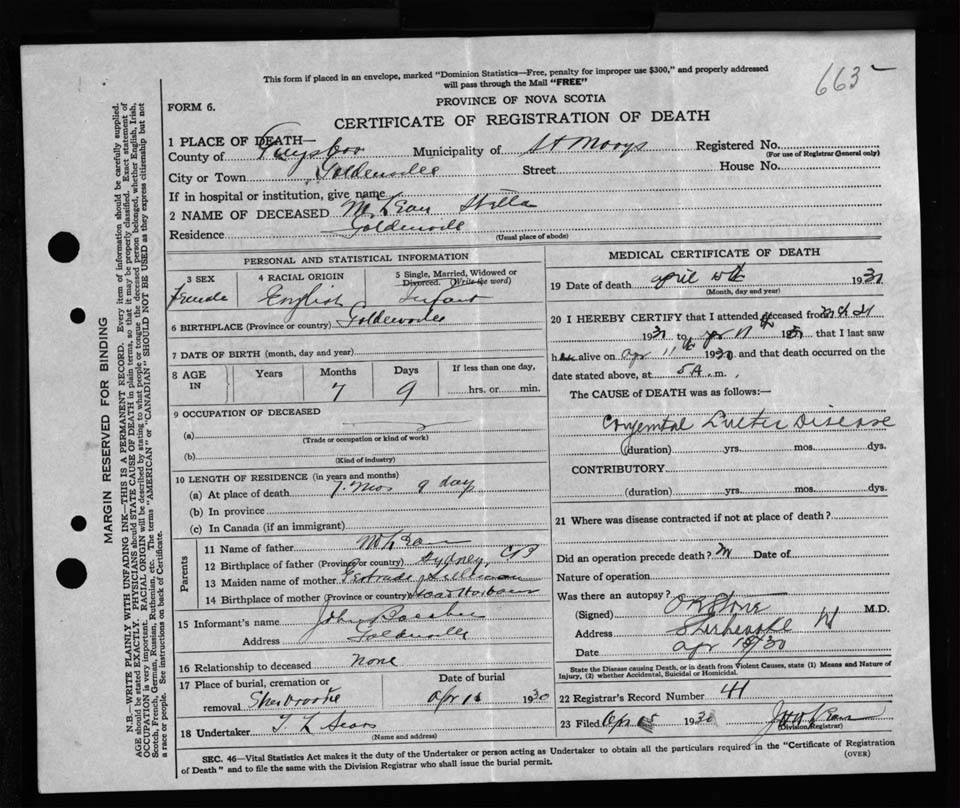 This form if placed in an envelope, marked “Dominion Statistics—Free, penalty for improper use $300,” and properly addressed
will pass through the Mail “FREE”
663
FORM 6.
PROVINCE OF NOVA SCOTIA
CERTIFICATE OF REGISTRATION OF DEATH
1 PLACE OF DEATH—
County of Guysboro Municipality of St Marys Registered No.
(For use of Registrar General only)
City or Town Goldenville Street House No.
If in hospital or institution, give name
2 NAME OF DECEASED Stella
Residence Goldenville
(Usual place of abode)
PERSONAL AND STATISTICAL INFORMATION
3 SEX 4 RACIAL ORIGIN 5 Single, Married, Widowed or
Divorced. (Write the word)
Female English Infant
6 BIRTHPLACE (Province or country) Goldenville
7 DATE OF BIRTH (month, day and year)
8 AGE IN Years Months Days If less than one day,
7 9 hrs. or min.
9 OCCUPATION OF DECEASED
(a)
(Trade or occupation or kind of work)
(b)
(Kind of industry)
10 LENGTH OF RESIDENCE (in years and months)
(a) At place of death 7 mos 9 day
(b) In province
(c) In Canada (if an immigrant)
Parents
11 Name of father
12 Birthplace of father (Province or country) Sydney, CB
13 Maiden name of mother Gertrude
14 Birthplace of mother (Province or country)
15 Informant's name John
Address Goldenville
16 Relationship to deceased none
17 Place of burial, cremation or Date of burial
removal Sherbrooke Apr 1930
18 Undertaker T L Sears
(Name and address)
MEDICAL CERTIFICATE OF DEATH
19 Date of death April 1930
(Month, day and year)
20 I HEREBY CERTIFY that I attended deceased from
193 to Apr 11th 193 , that I last saw
h alive on Apr 11th 1930 and that death occurred on the
date stated above, at 5 A. m.
The CAUSE of DEATH was as follows:—
Congenital Disease
(duration) yrs. mos. dys.
CONTRIBUTORY
(duration) yrs. mos. dys.
21 Where was disease contracted if not at place of death?
Did an operation precede death? Date of
Nature of operation
Was there an autopsy?
(Signed) M.D.
Address Sherbrooke
Date Apr 30
State the Disease causing Death, or in death from Violent Causes, state (1) Means and Nature of
Injury, (2) whether Accidental, Suicidal or Homicidal.
22 Registrar's Record Number 41
23 Filed Apr 15 1930
(Division Registrar)
SEC. 46—Vital Statistics Act makes it the duty of the Undertaker or person acting as Undertaker to obtain all the particulars required in the “Certificate of Registration
of Death” and to file the same with the Division Registrar who shall issue the burial permit.
(OVER)
MARGIN RESERVED FOR BINDING
N.B.—WRITE PLAINLY WITH UNFADING INK—THIS IS A PERMANENT RECORD. Every item of information should be carefully supplied.
AGE should be stated EXACTLY. PHYSICIANS should STATE CAUSE OF DEATH in plain terms, so that it may be properly classified. Exact statement of
OCCUPATION is very important. RACIAL ORIGIN will be described by stating to what people or tongue the deceased person belonged, whether English, Irish,
Scotch, French, German, Russian, Ruthenian, etc. The terms “AMERICAN” or “CANADIAN” SHOULD NOT BE USED as they express citizenship but not
a race or people. See instructions on back of Certificate.